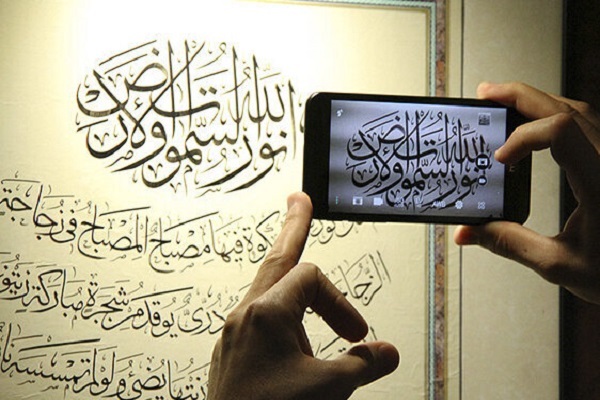 الله نور السموات والارض
كوة فيها مصباح المصباح فى زجاجة
الزجا
درى يوقد من شجرة مباركة زيتو
زيتها يضئ ولو لم تمسسه نا
الله نور السموات والارض